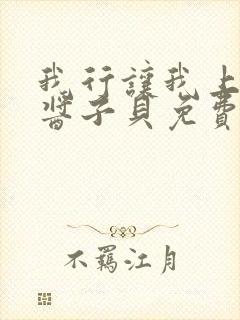 我行讓我上
醬子貝免費
不羈江月